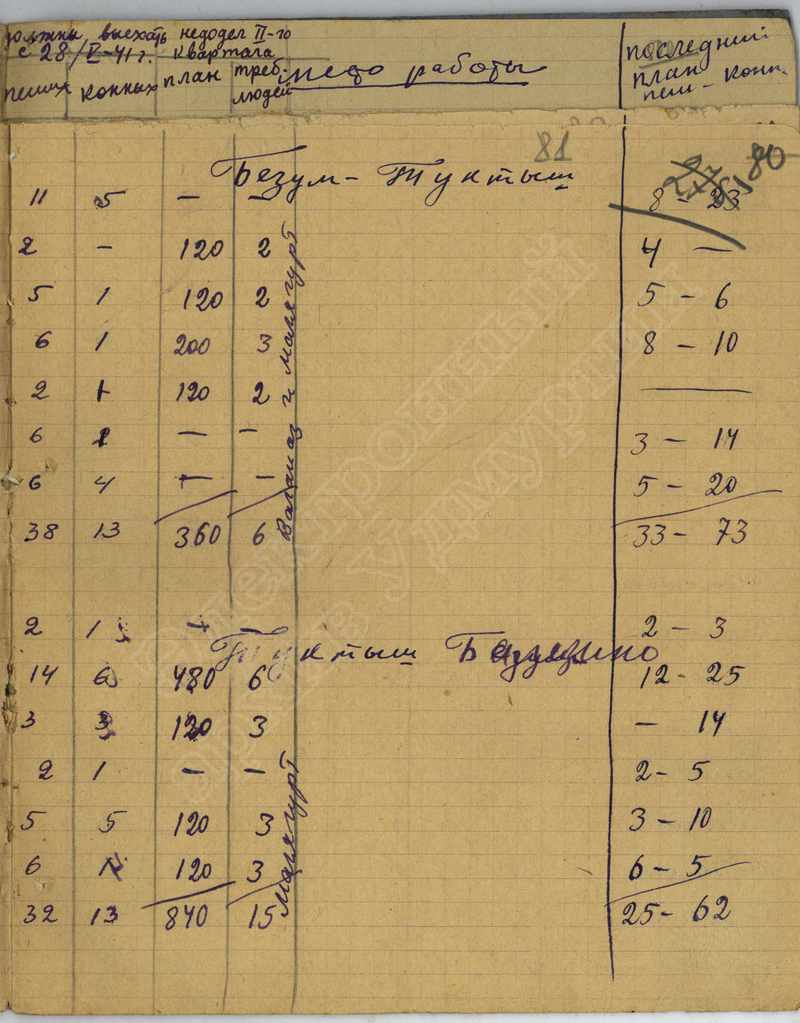 должны выехать недодел II-го
с 28/V-41г. квартала
пеших конных план треб. людей место работы последний план пеш - конн.
81 80
Безум - Туктыш
11 5 — — 8 - 23
2 - 120 2 4 —
5 1 120 2 5 - 6
6 1 200 3 8 - 10
2 1 120 2 —
6 — — 3 - 14
6 4 — — 5 - 20
38 13 360 6 33 - 73
и Малягурт
2 1 — 2 - 3
Туктыш
14 6 480 6 12 - 25
3 3 120 3 — 14
2 1 — — 2 - 5
5 5 120 3 3 - 10
6 1 120 3 6 - 5
32 13 840 15 25 - 62
Малягурт